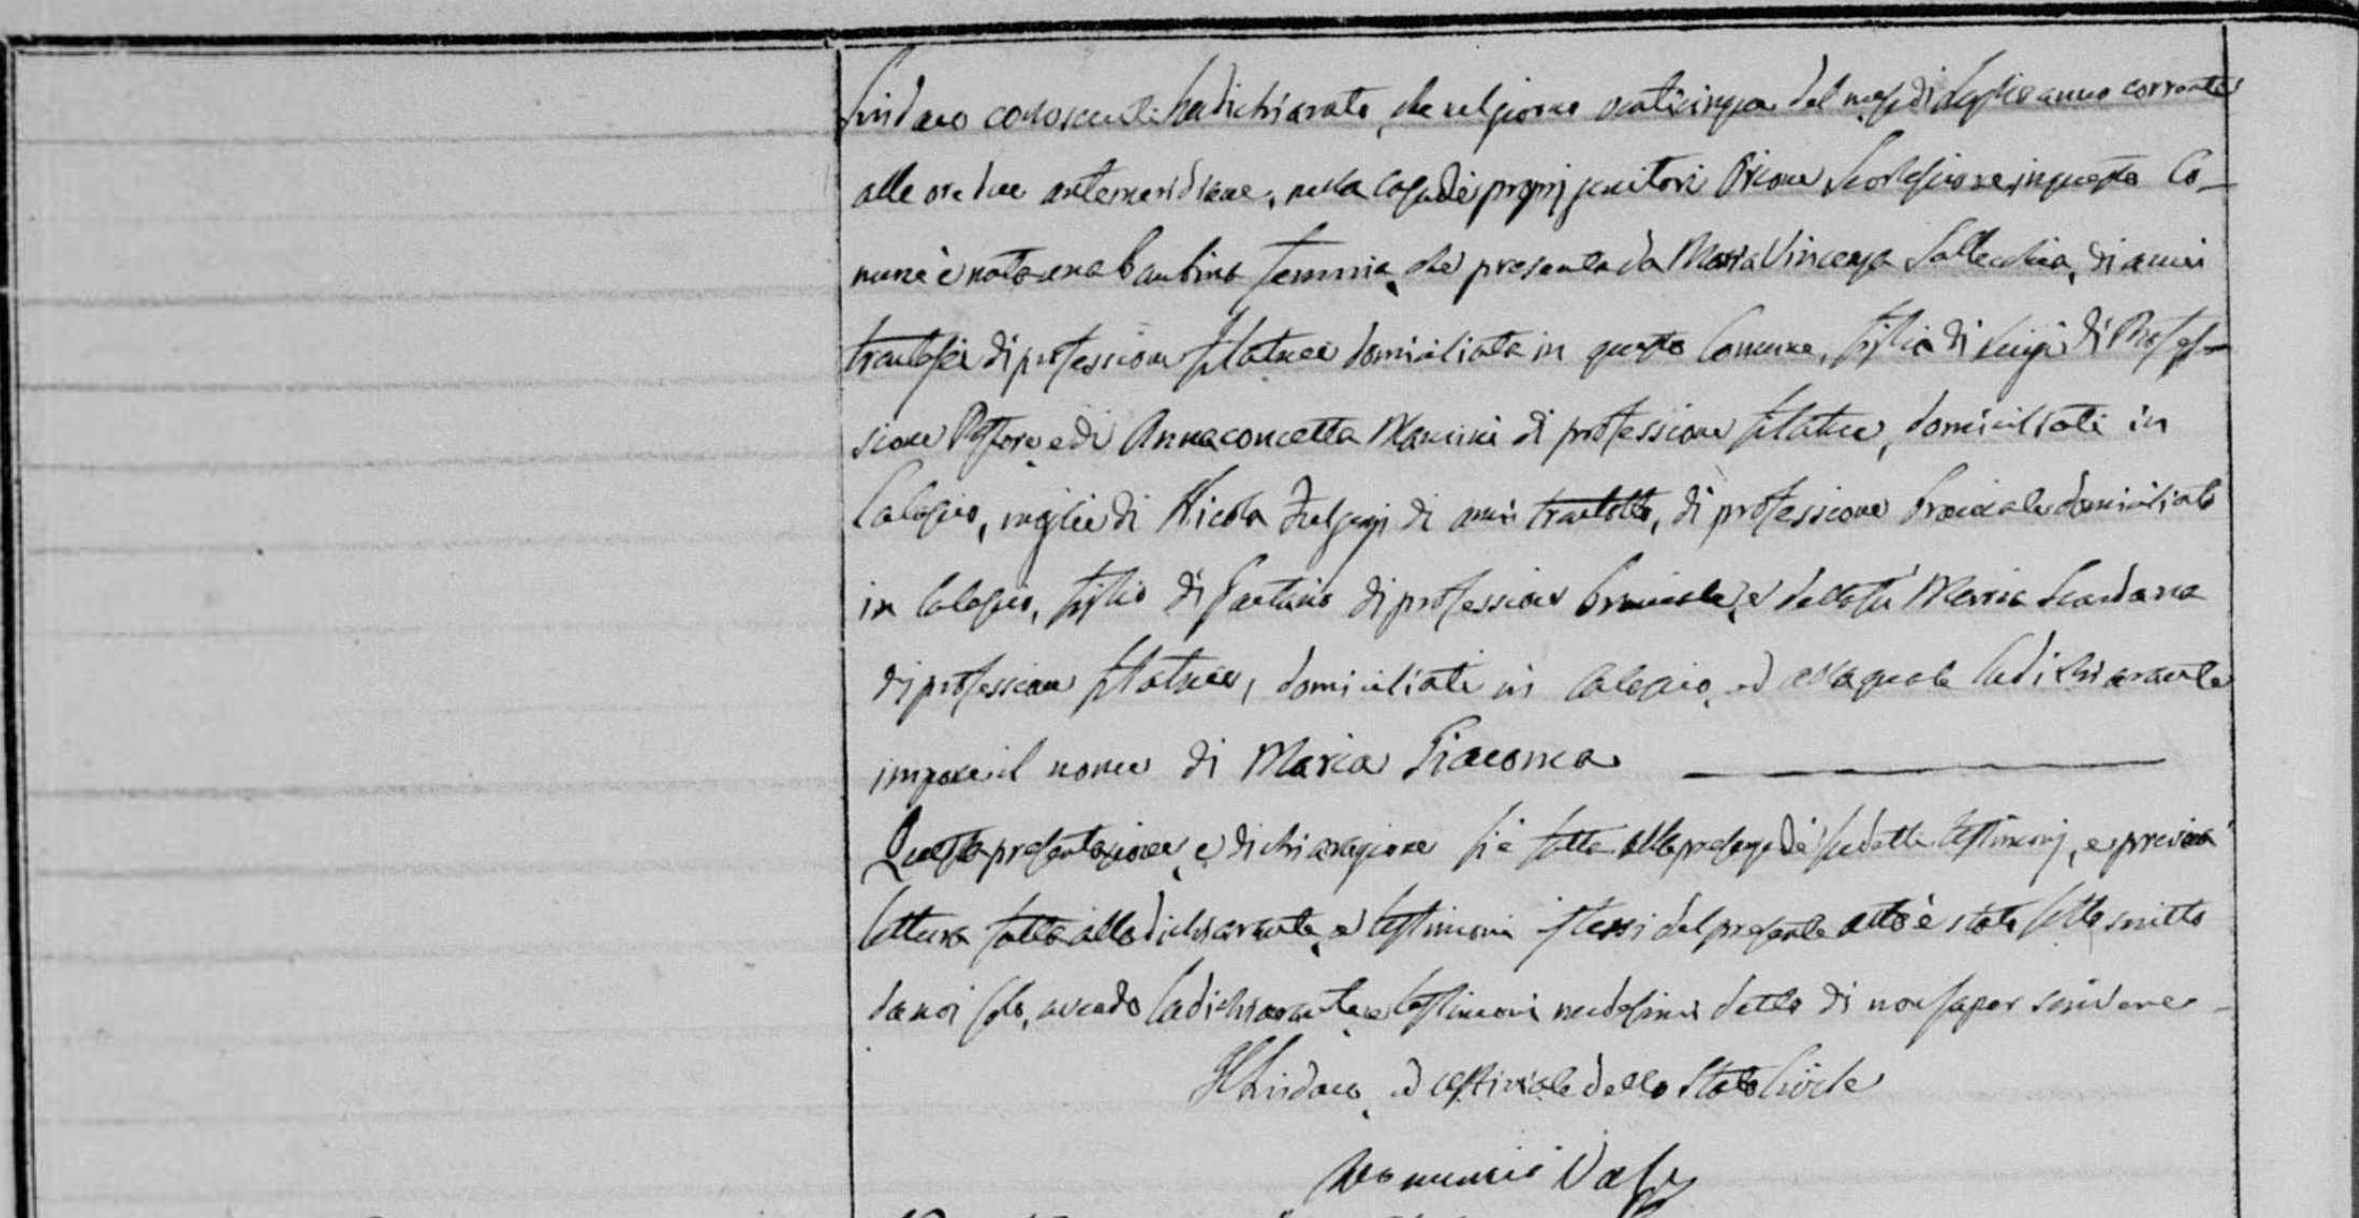 Sindaco conoscenti ha dichiarato, che nel giorno venticinque del mese di Luglio anno corrente
alle ore due antemeridiane, nella casa de' proprj genitori Rione in questo Co-
mune è nata una bambina femmina, che presenta da Maria Vincenza di anni
trentasei di professione filatrice domiciliata in questo Comune, figlia di Luigi di Profes-
sione Pastore e di Annaconcetta Mancini di professione filatrice, domiciliati in
Calascio, moglie di Nicola Fulgenzj di anni trentotto, di professione bracciale domiciliato
in Calascio, figlio di Gaetano di professione bracciale, e della fu Maria
di professione filatrice, domiciliati in Calascio, ed alla quale la dichiarante
impone il nome di Maria Giacoma
Questa presentazione, e dichiarazione si è fatta alla presenza de' suddetti testimonj, e previa
lettura fatta alla dichiarante, e testimoni stessi del presente atto è stato sottoscritto
da noi solo, avendo la dichiarante, e testimoni medesimi detto di non saper scrivere -
Il Sindaco, ed uffiziale dello Stato Civile